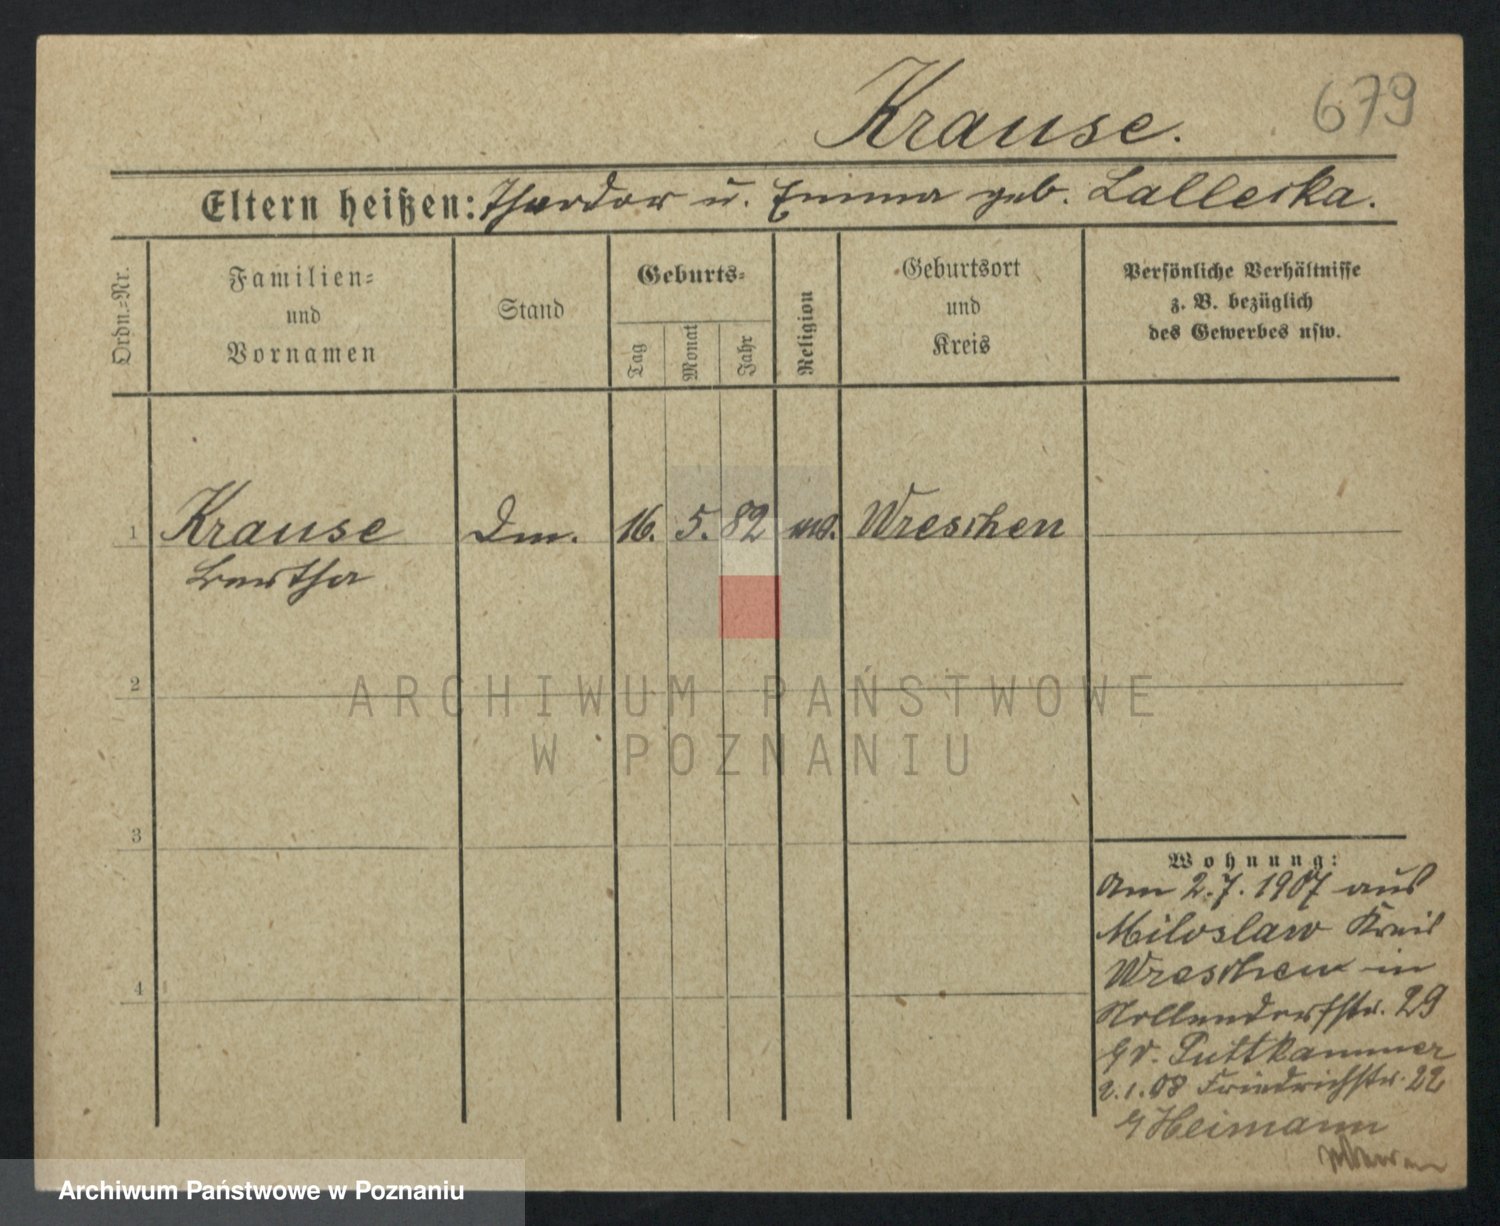 Krause.
679
Eltern heißen: Theodor u. Emma geb. Lalleska.
Ordn.-Nr.
Familien-
und
Vornamen
Stand
Geburts-
Tag
Monat
Jahr
Religion
Geburtsort
und
Kreis
Persönliche Verhältnisse
z. B. bezüglich
des Gewerbes usw.
1 Krause Dm. 16. 5. 82 Wreschen
Bertha
2
ARCHIWUM PAŃSTWOWE
W POZNANIU
3
Wohnung:
Am 2.7.1907 aus
Miloslaw Kreis
Wreschen in
4
Nollendorfstr. 29
Puttkammer
2.1.08 Friedrichstr. 22
Heimann
Archiwum Państwowe w Poznaniu